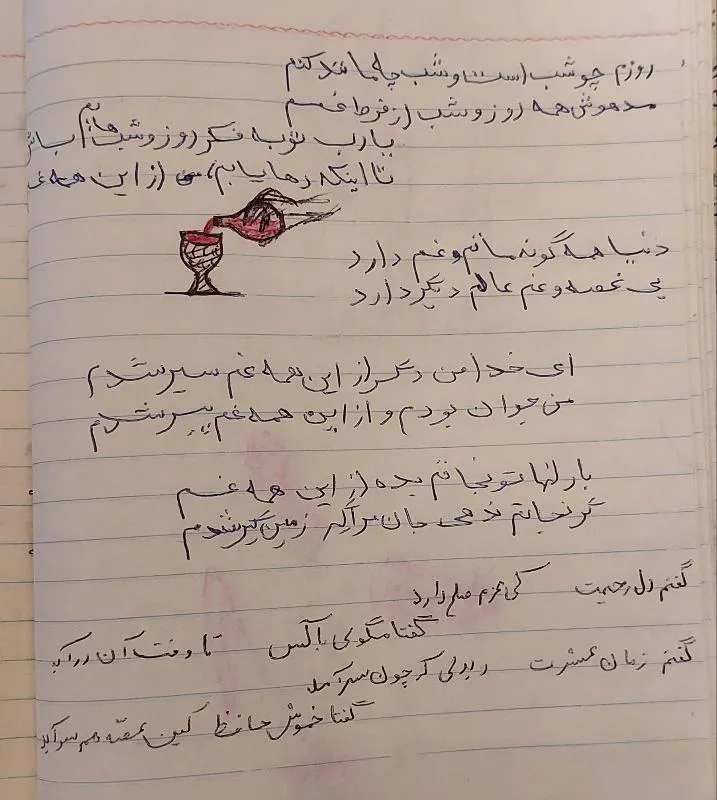 روزم چو شب است و شب چه ماند کنم
مدهوش همه روز و شب از فرط غم
یارب تو به فکر روز و شبهایم
تا اینکه رهایابم من از این همه
دنیا همه گونه ماتم و غم دارد
بی غصه و غم عالم دیگر دارد
ای خدا من دگر از این همه غم سیر شدم
من جوان بودم و از این همه غم پیر شدم
بارلها تو نجاتم بده از این همه غم
گر نجاتم ندهی جان مرا زمین گیر شدم
گفتم دل رحیمت کی عزم صلح دارد
گفتا مگوی با کس تا وقت آن درآید
گفتم زمان عشرت دیدی که چون سرآمد
گفتا خموش حافظ کین غصه هم سرآید